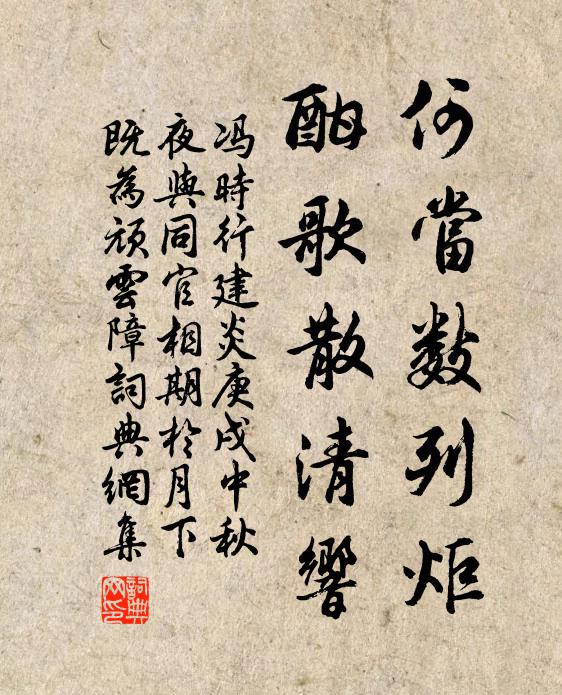 何當數列炬
酣歌散清響
冯時行建炎庚戌中秋
夜與同官相期於月下
既為頑雲障詞典網集
詞典
网印